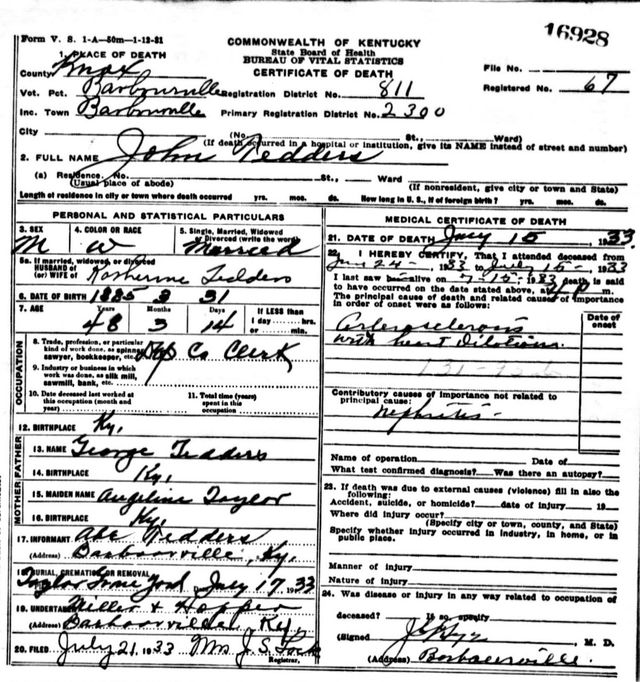 16928
Form V. S. 1-A—50m—1-12-31
COMMONWEALTH OF KENTUCKY
State Board of Health
BUREAU OF VITAL STATISTICS
CERTIFICATE OF DEATH
1. PLACE OF DEATH
County Knox
File No.
Vot. Pct. Barbourville Registration District No. 811
Registered No. 67
Inc. Town Barbourville Primary Registration District No. 2300
City (No. St., Ward)
(If death occurred in a hospital or institution, give its NAME instead of street and number)
2. FULL NAME John Tedders
(a) Residence. No. St., Ward
(Usual place of abode) (If nonresident, give city or town and State)
Length of residence in city or town where death occurred yrs. mos. ds. How long in U. S., if of foreign birth? yrs. mos. ds.
PERSONAL AND STATISTICAL PARTICULARS
3. SEX 4. COLOR OR RACE 5. Single, Married, Widowed
or Divorced (write the word)
M W Married
5a. If married, widowed, or divorced
HUSBAND of
(or) WIFE of Katherine Tedders
6. DATE OF BIRTH 1885 3 31
7. AGE Years Months Days If LESS than
48 3 14 1 day hrs.
or min.
OCCUPATION
8. Trade, profession, or particular
kind of work done, as spinner,
sawyer, bookkeeper, etc. Dep Co Clerk
9. Industry or business in which
work was done, as silk mill,
sawmill, bank, etc.
10. Date deceased last worked at
this occupation (month and
year)
11. Total time (years)
spent in this
occupation
12. BIRTHPLACE Ky.
FATHER
13. NAME George Tedders
14. BIRTHPLACE Ky.
MOTHER
15. MAIDEN NAME Angeline Taylor
16. BIRTHPLACE Ky.
17. INFORMANT Abe Tedders
(Address) Barboorville, Ky.
18. BURIAL, CREMATION OR REMOVAL
Taylor Grave Yard July 17 1933
19. UNDERTAKER Miller & Hopper
(Address) Barboorville, Ky
20. FILED July 21 1933 Mrs J. S.
Registrar.
MEDICAL CERTIFICATE OF DEATH
21. DATE OF DEATH July 15, 1933
22. I HEREBY CERTIFY, That I attended deceased from
24, 1933 to July 15, 1933
I last saw h alive on 7-15-, 1933 death is said
to have occurred on the date stated above, at m.
The principal cause of death and related causes of importance
in order of onset were as follows:
Date of
onset
Arterosclerosis
with heart Dilation.
131
Contributory causes of importance not related to
principal cause:
Nephritis
Name of operation Date of
What test confirmed diagnosis? Was there an autopsy?
23. If death was due to external causes (violence) fill in also the
following:
Accident, suicide, or homicide? date of injury 19
Where did injury occur?
(Specify city or town, county, and State)
Specify whether injury occurred in industry, in home, or in
public place.
Manner of injury
Nature of injury
24. Was disease or injury in any way related to occupation of
deceased? If so, specify
(Signed M. D.
(Address) Barbourville.